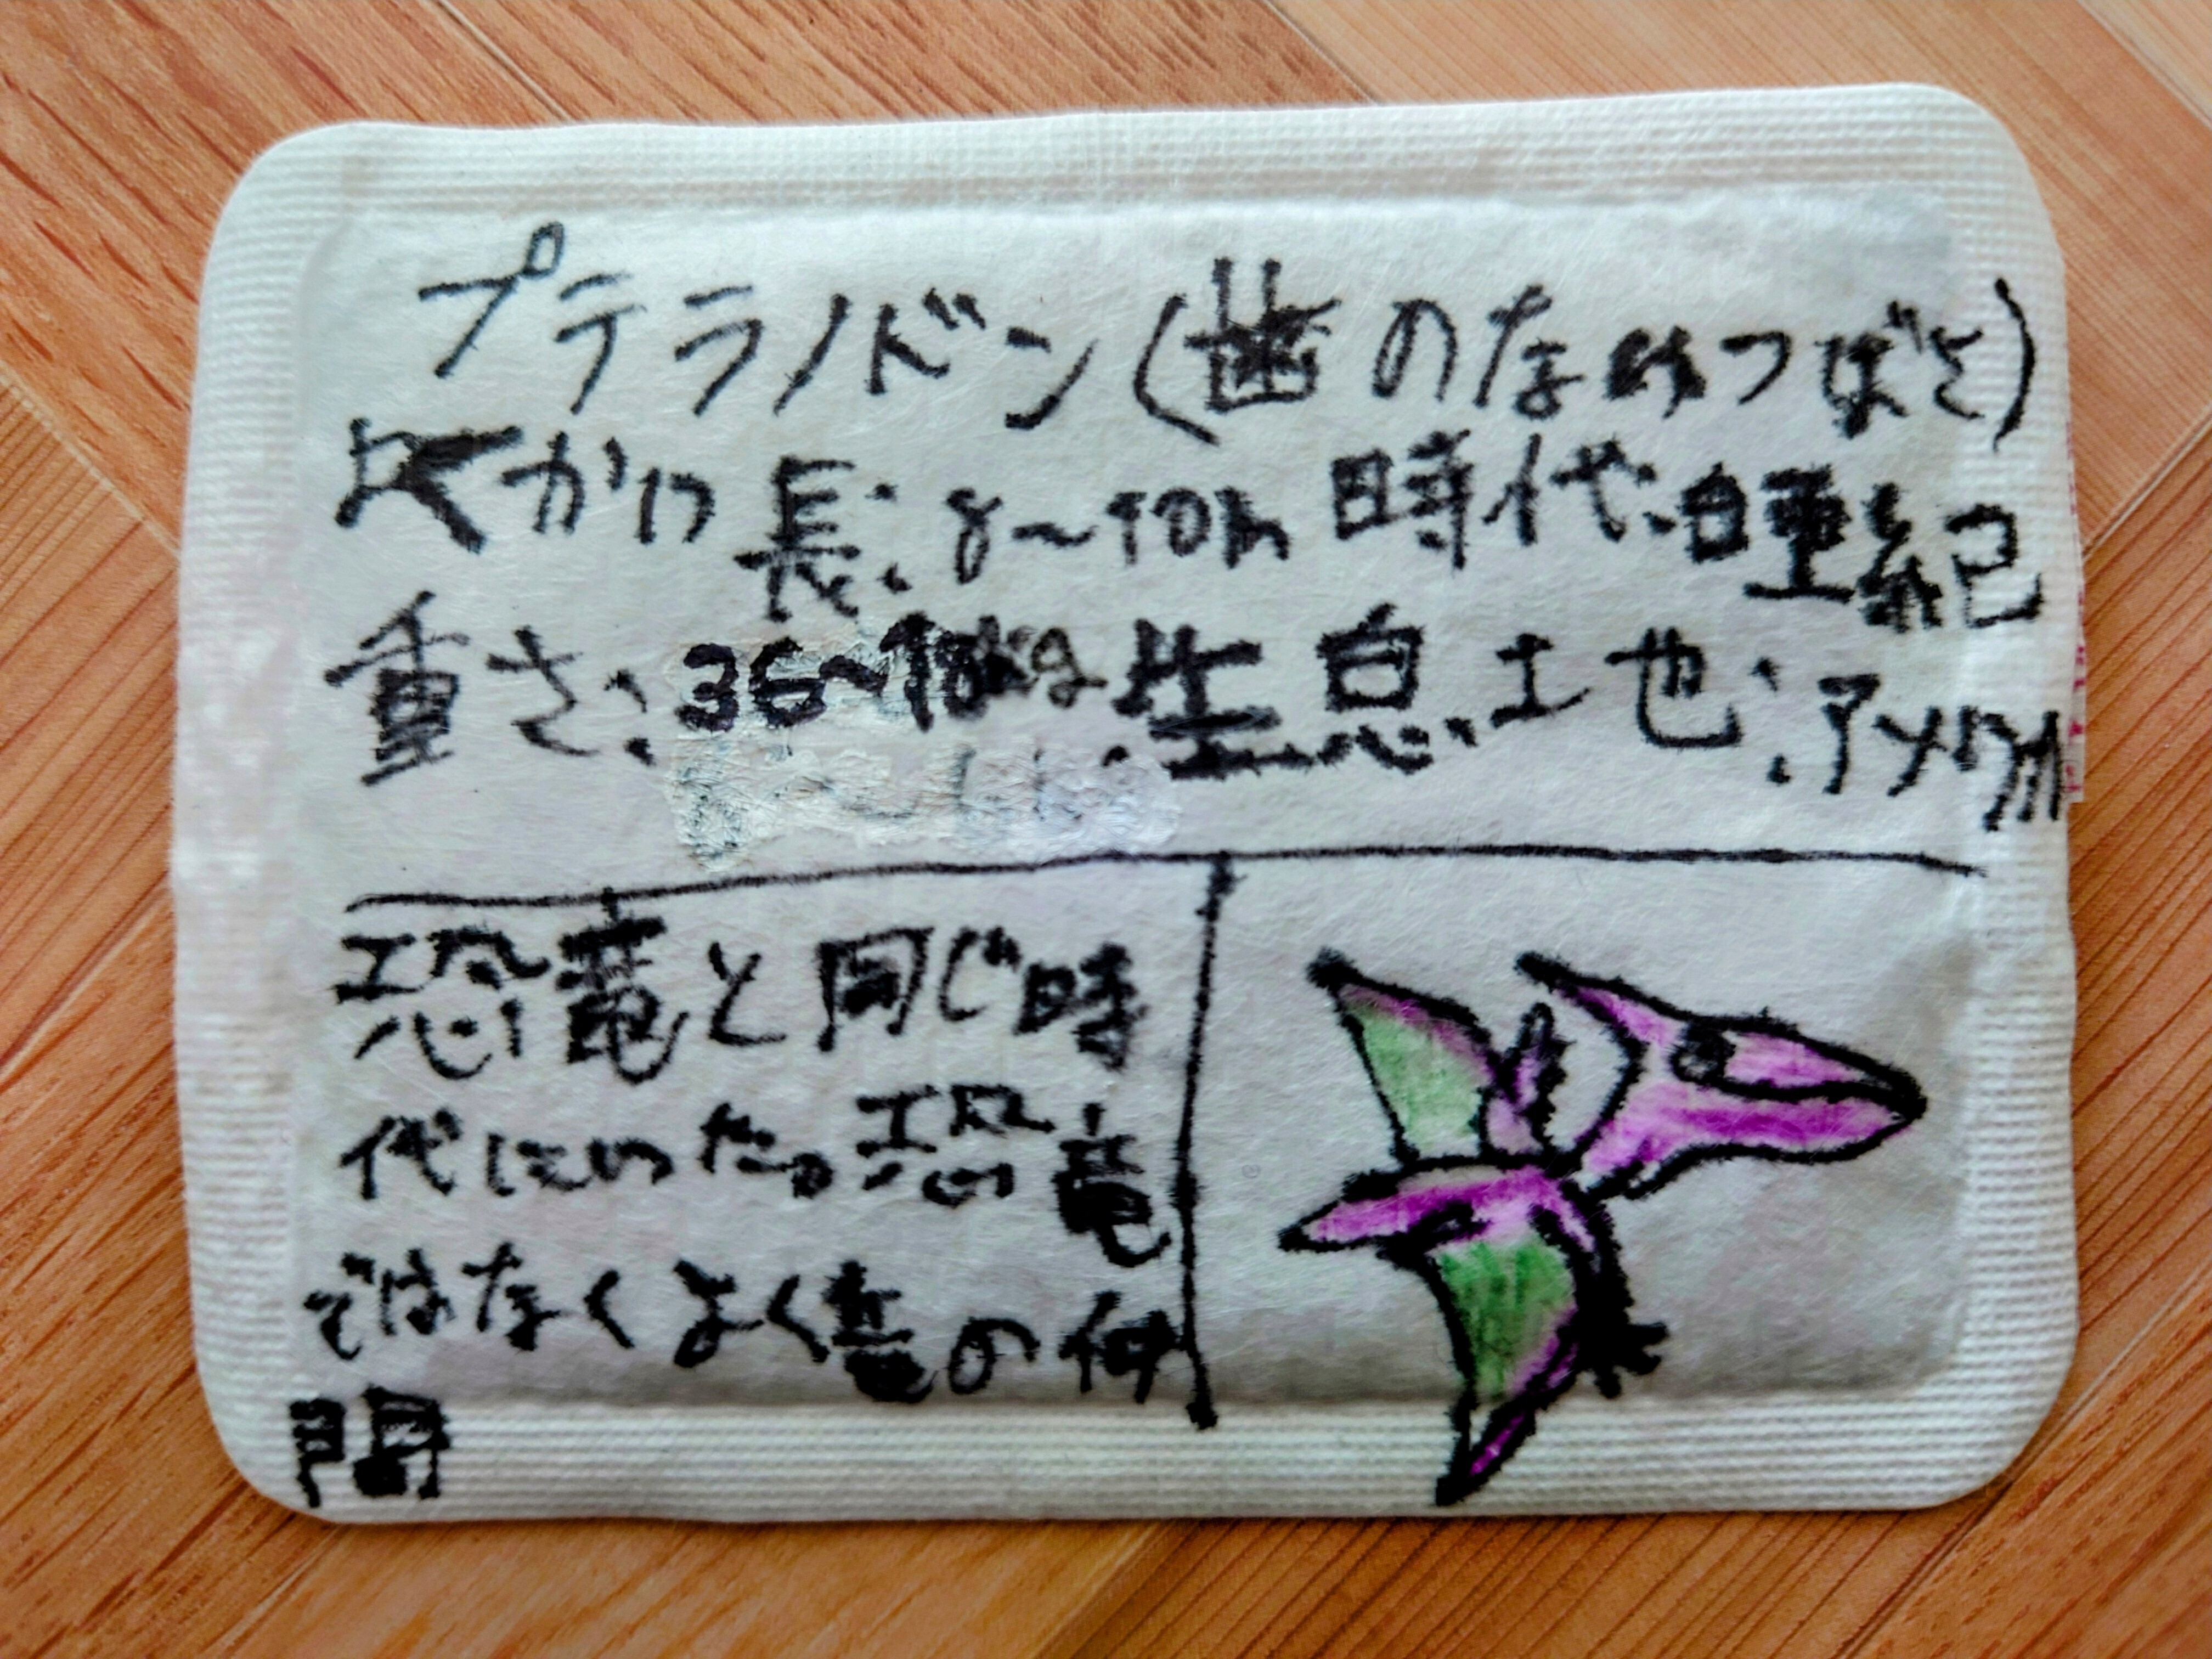 プテラノドン(歯のないつばさ)
よくかい長:8~10m 時代:白亜紀
重さ:36~18kg 生息土也:アメリカ
恐竜と同じ時
代にいた。恐竜
ではなくよく竜の仲
間